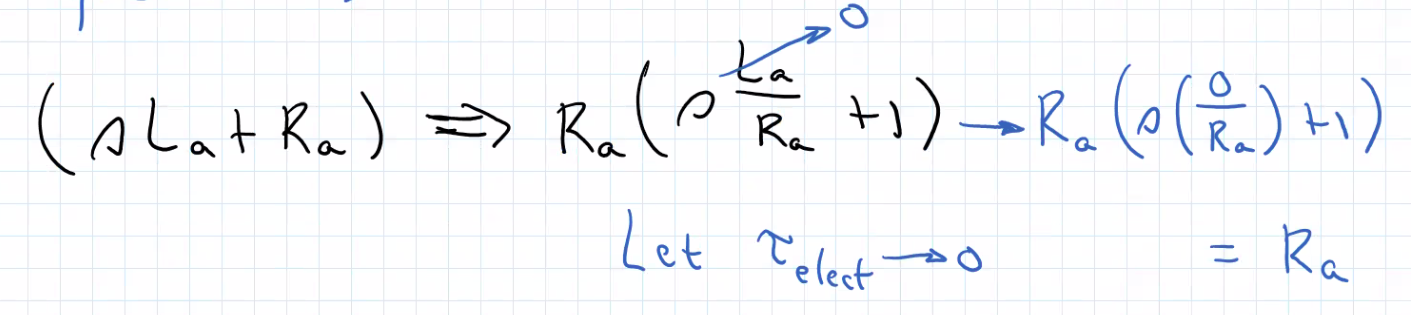 (sLₐ + Rₐ) ⇒ Rₐ(s Lₐ/Rₐ + 1) → Rₐ(s(0/Rₐ) + 1)
0
Let τ_elect → 0 = Rₐ